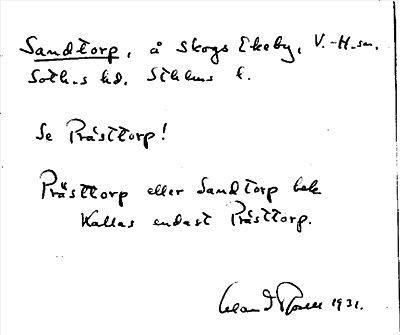 Sandtorp, å Skogs Ekeby, V.-H-sn.
Soth-s hd. Sthlms l.
Se Prästtorp!
Prästtorp eller Sandtorp bek
Kallas endast Prästtorp.
1931.